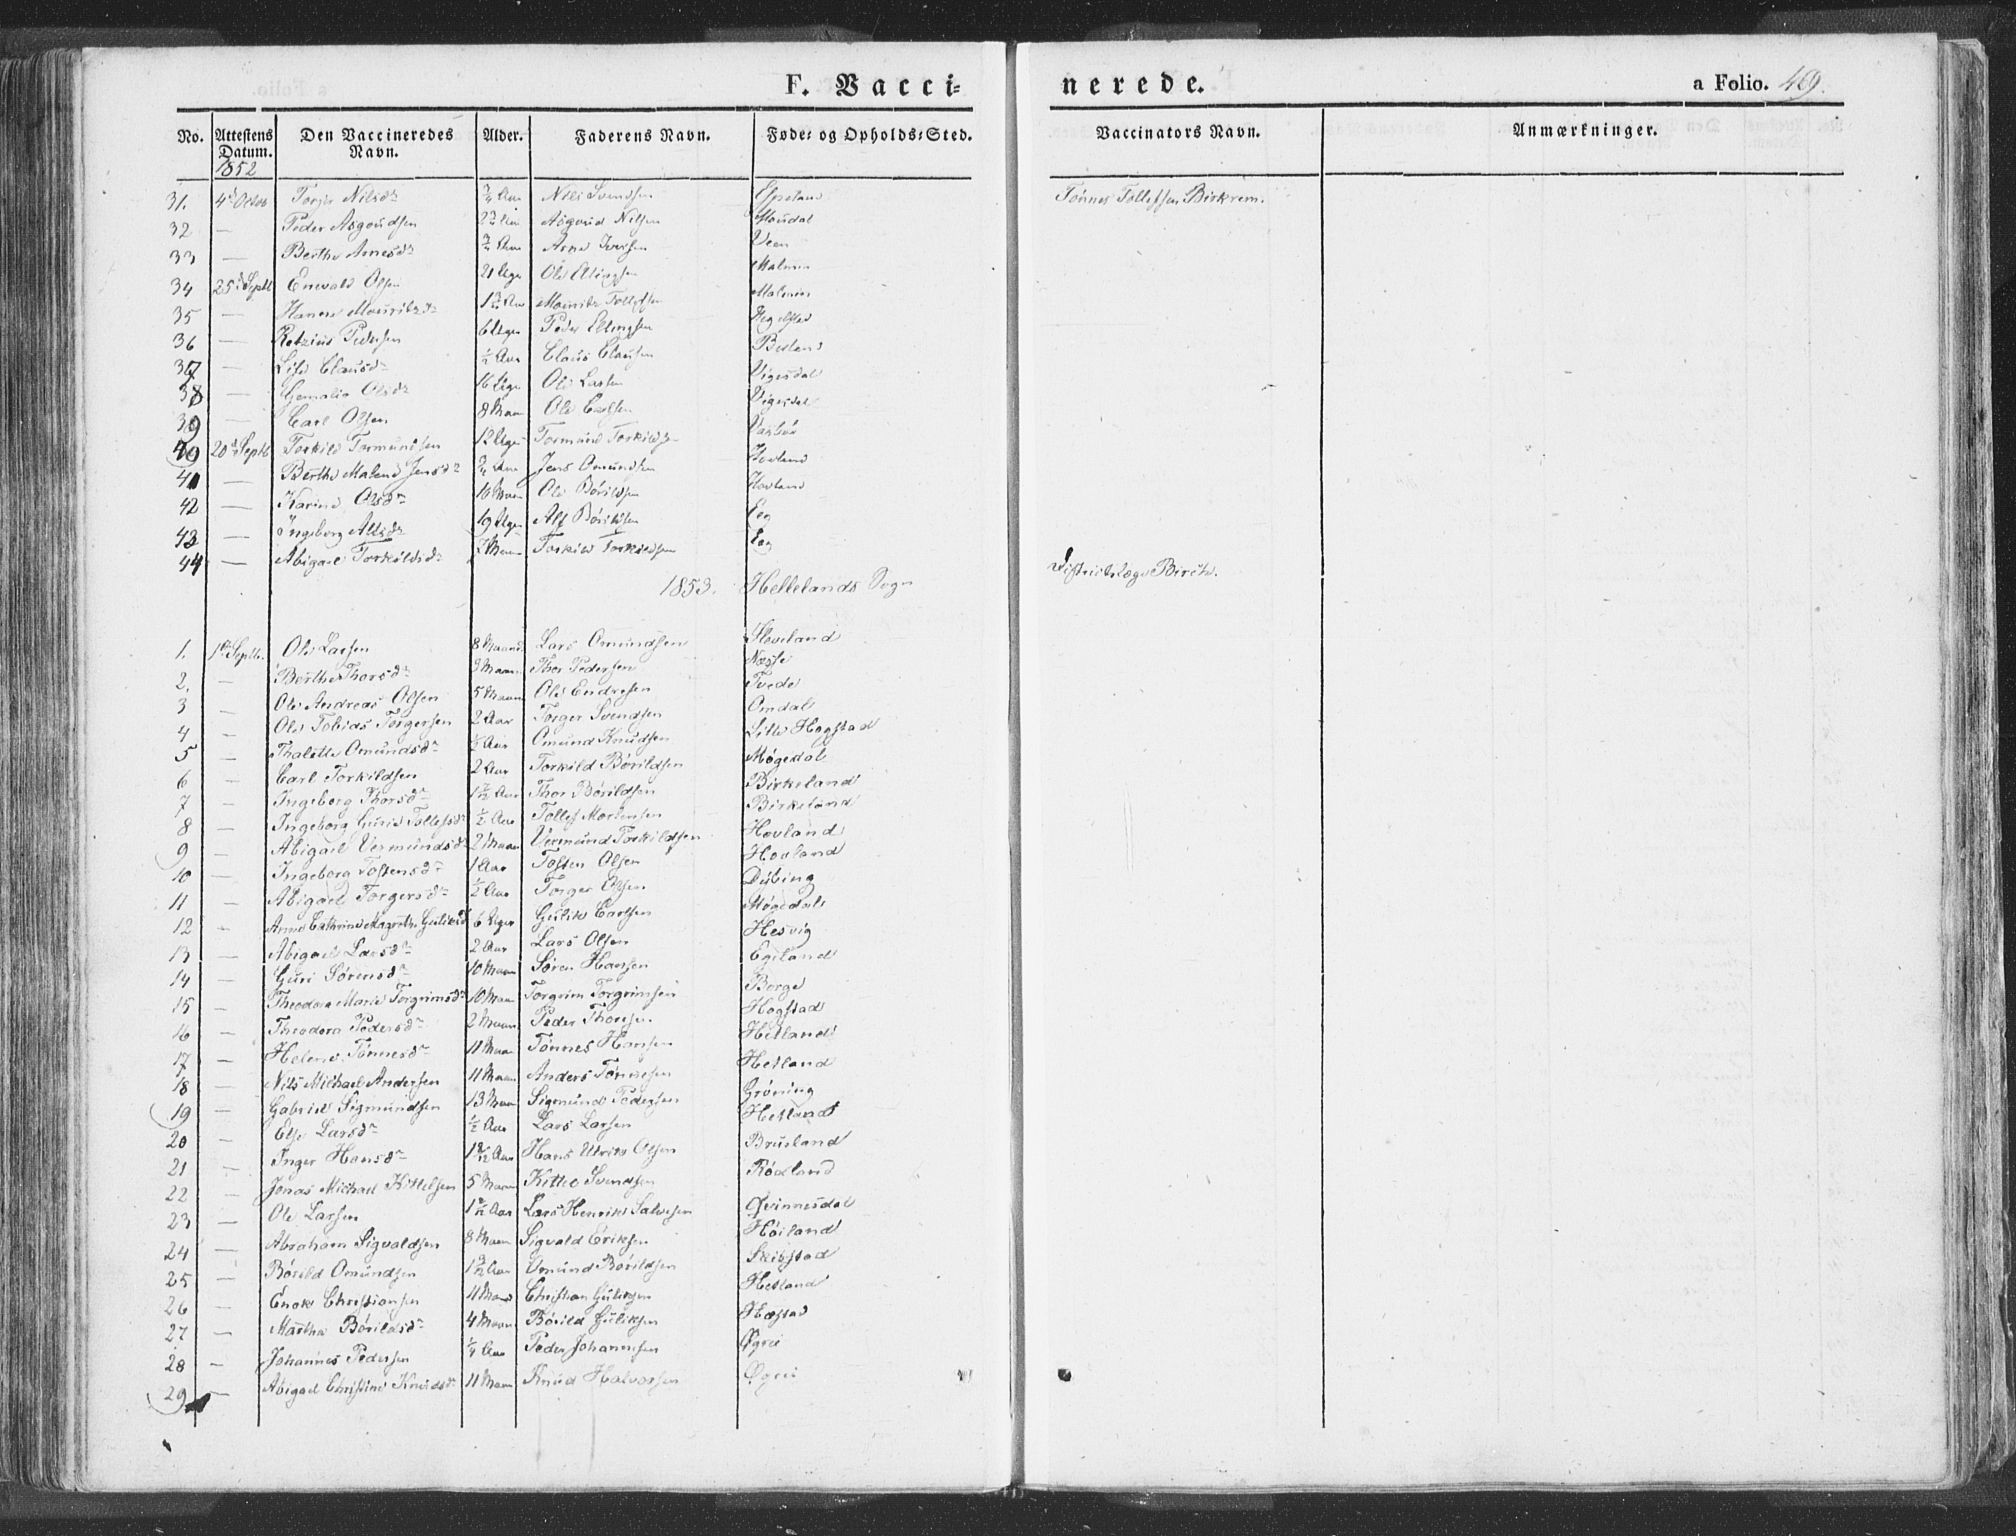 F. Vacci-
nerede.
a Folio. 469.
No. Attestens Datum. Den Vaccineredes Navn. Alder. Faderens Navn. Føde- og Opholds-Sted. Vaccinators Navn. Anmærkninger.
1852
31. 4d Octbr Nils Svendsen Espeland Tønnes Tollefsen Birkrem.
32 — Peder Asgoudsen Asgoud Nilsen
33 — Berthe Arnesdr Arne Iversen Veen
34 25d Septb Enevald Olsen 21 Uger Ole Ellingsen Malmin
35 — Hanne Mouritzdr Mouritz Tollefsen Malmin
36 — Retzius Pedersen 6 Uger Peder Ellingsen Hegelstad
37 — Lise Clausdr ½ Aar Claus Clausen
38 — Olsdr 16 Uger Ole Larsen Vigesdal
39 — Carl Olsen 8 Maan Ole Carlsen Vigesdal
40 20d Septb Torkild Tormundsen 12 Uger Tormund Torkildsen
41 — Berthe Malene Jensdr Jens Omundsen Hovland
42 — Karine Olsdr 16 Maan Ole Børildsen Hovland
43 — Ingeborg Alfsdr 19 Uger Alf Børildsen Eeg
44 — Abigael Torkildsdr Torkild Torkildsen Eeg
1853. Hellelands Sogn Districtslæge Birch.
1. 1ste Septbr. Ole Larsen 8 Maand Lars Omundsen Floveland
2. — Berthe Thorsdr Maan Thor Pedersen Næsse
3 — Ole Andreas Olsen 5 Maan Ole Endresen Tvede
4 — Ole Tobias Torgersen 2 Aar Torger Svendsen Omdal
5 — Thalette Omundsdr ½ Aar Omund Knudsen Lille Hogstad
6 — Carl Torkildsen 2 Aar Torkild Børildsen Møgedal
7 — Ingeborg Thorsdr Thor Børildsen Birkeland
8 — Ingeborg Gurie Tollefsdr ½ Aar Tollef Mortensen Birkeland
9 — Abigael Vermundsdr 2 Maan Vermund Torkildsen Hovland
10 — Ingeborg Tostensdr 1 Aar Tosten Olsen Hovland
11 — Abigael Torgersdr ½ Aar Torger Olsen Dybing
12 — Anne Cathrine Magrethe Guliksd 6 Uger Gulik Carlsen Møgedal
13 — Abigael Larsdr 2 Aar Lars Olsen Hesvig
14 — Guri Sørensdr 10 Maan Søren Hansen Egeland
15 — Theodora Marie Torgrimsdr 10 Maan Torgrim Torgrimsen Berge
16 — Theodora Pedersdr 2 Maan Peder Thorsen Hogstad
17 — Helene Tønnesdr 11 Maan Tønnes Hansen Hetland
18 — Nils Michael Andersen 11 Maan Anders Tønnesen Hetland
19 — Gabriel Sigmundsen 13 Maan Sigmund Pedersen Grøning
20 — Else Larsdr ½ Aar Lars Larsen Hetland
21 — Inger Hansdr Hans Ulrik Olsen Brusland
22 — Jonas Michael Kittelsen 5 Maan Kittel Svendsen Rødland
23 — Ole Larsen Lars Henrik Salvesen Qvinnesdal
24 — Abraham Sigvaldsen 8 Maan Sigvald Eriksen Høiland
25 — Børild Omundsen Omund Børildsen Skibstad
26 — Enok Christiansen 11 Maan Christian Guliksen Hetland
27 — Martha Børildsdr 4 Maan Børild Guliksen Hæstad
28 — Johannes Pedersen ¼ Aar Peder Johannesen Øgrei
29 — Abigael Christine Knudsdr 11 Maan Knud Halvorsen Øgrei